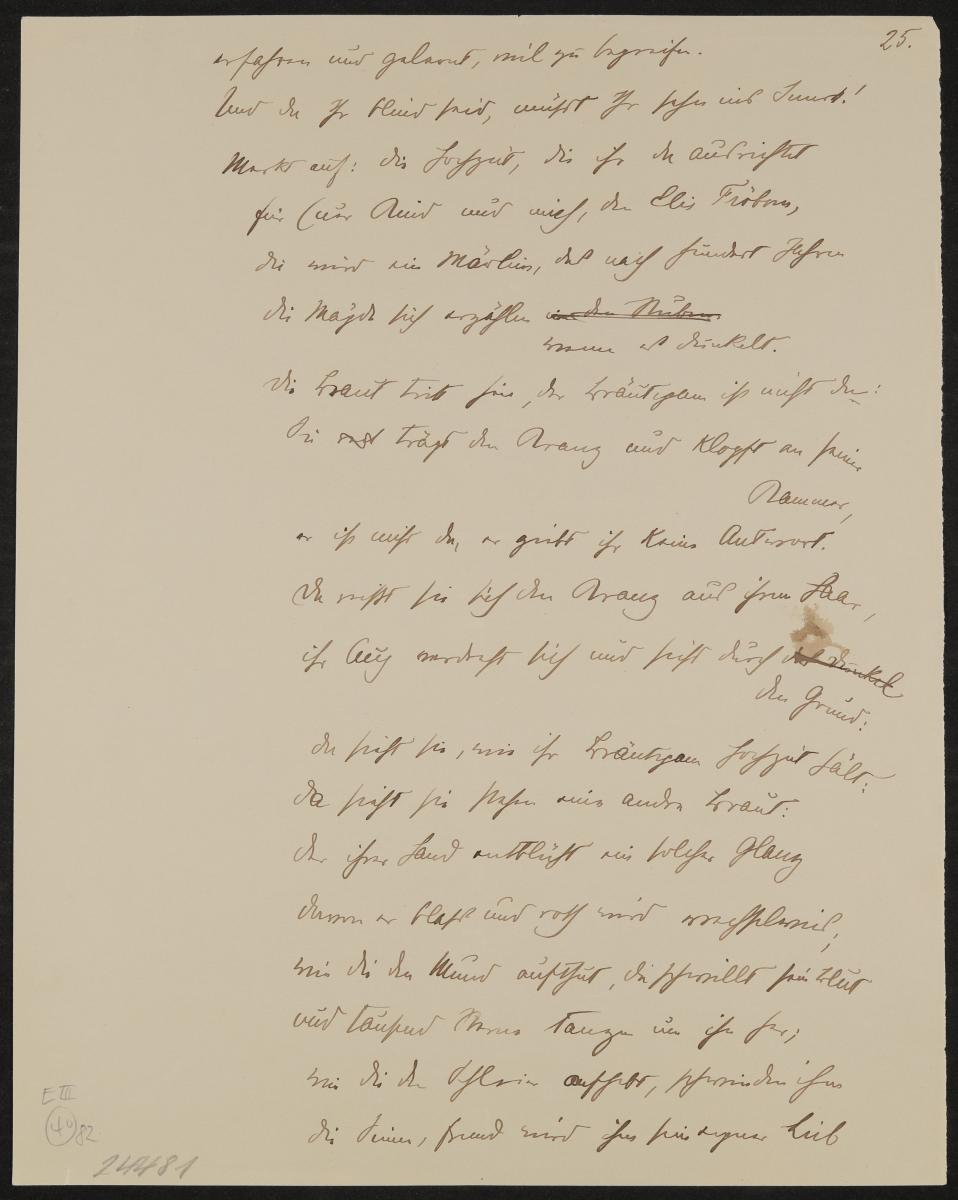 25.
erfahren und gelernt, viel zu begreifen.
Und da Ihr blind seid, müsst Ihr sehn ins Innere!
Merkt auf: die Hochzeit, die ihr da ausrichtet
für Euer Kind und mich, den Elis Fröbom,
die wird ein Märlein, das nach hundert Jahren
die Mägde sich erzählen in den Stuben
wenn es dunkelt.
Die Braut tritt hin, der Bräutigam ist nicht da:
Sie trägt den Kranz und klopft an seine
Kammer,
er ist nicht da, er giebt ihr keine Antwort.
Da reisst sie sich den Kranz aus ihrem Haar,
ihr Aug verdreht sich und sieht durch das Dunkel
den Grund:
da sieht sie, wie ihr Bräutigam Hochzeit hält:
da sieht sie stehen eine andre Braut:
der ihrer Hand entblüht ein solcher Glanz
davon er blass und roth wird wechselweis,
wie die den Mund aufthut, da schwillt sein Blut
und tausend Sterne tanzen um ihn her;
wie die den Schleier aufhebt, schwinden ihm
die Sinne, fremd wird ihm sein eigner Leib
E III
40
82
24481